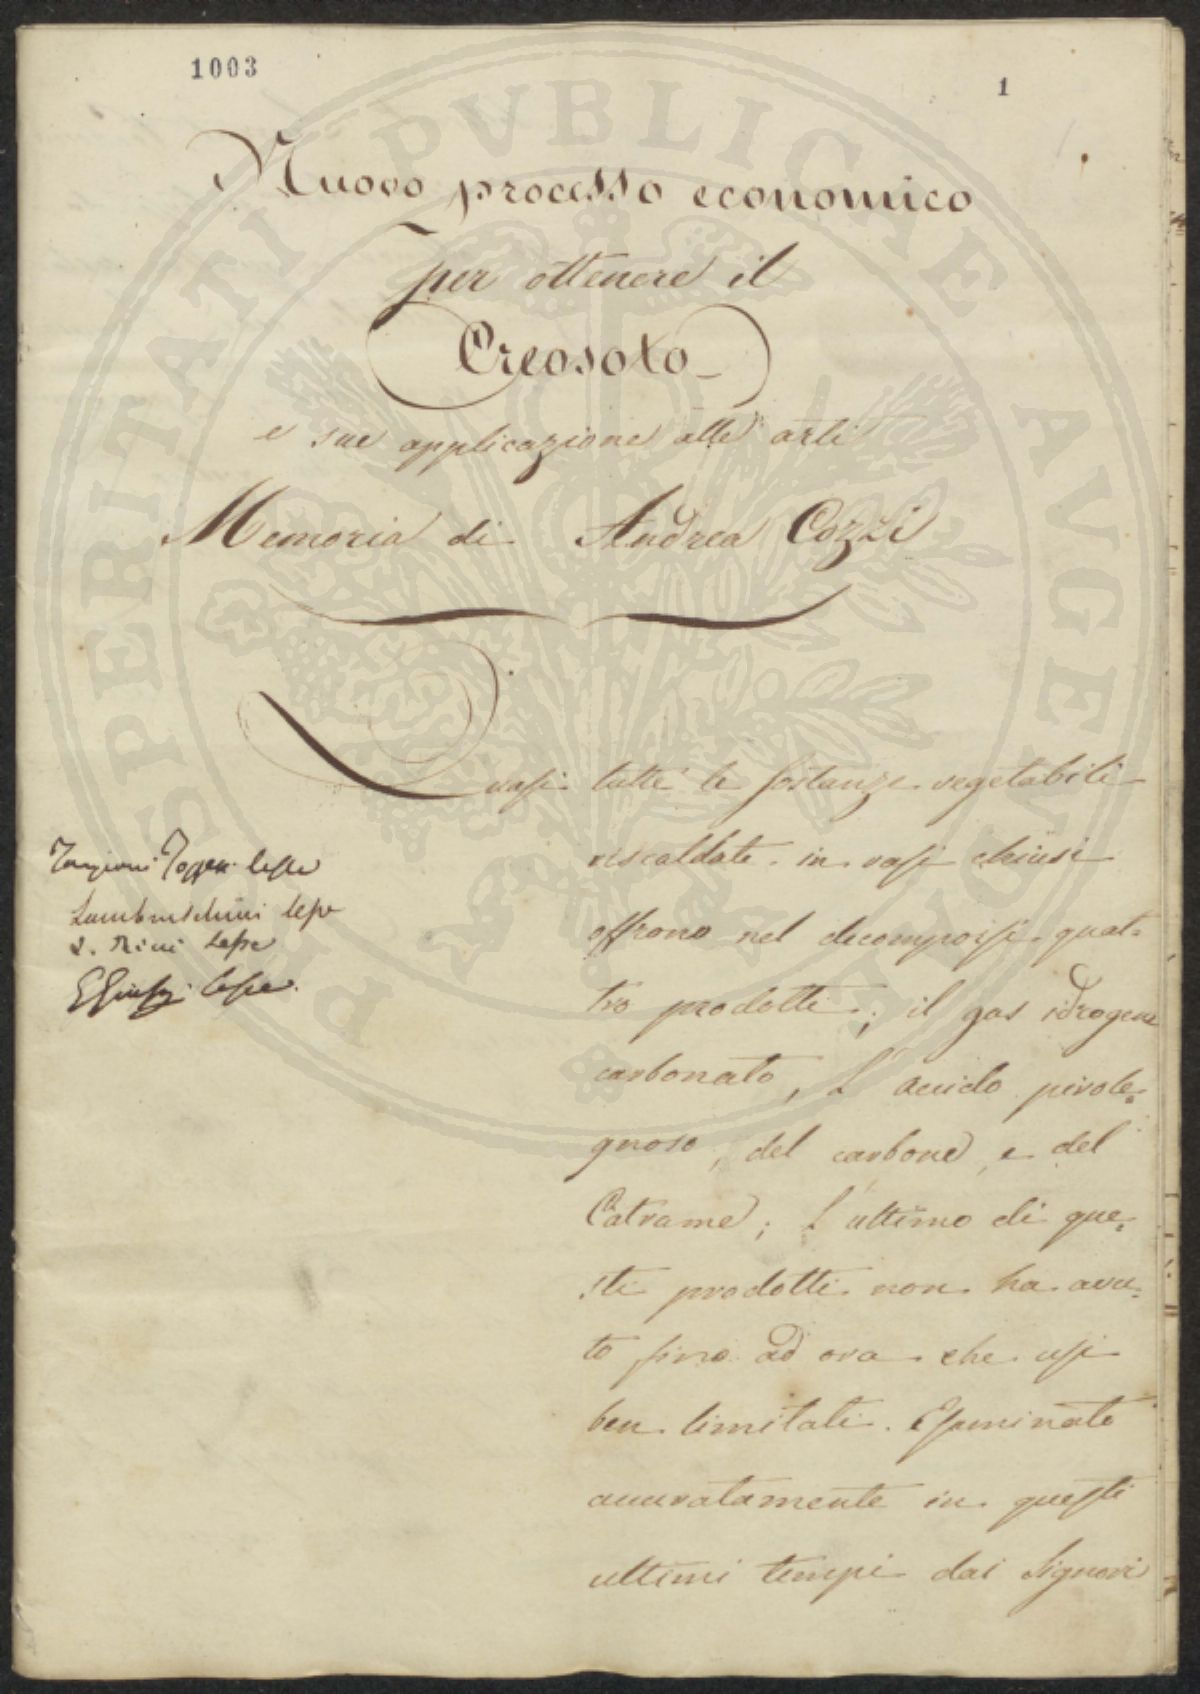 1003
1
Nuovo processo economico
per ottenere il
Creosoto
e sue applicazione alle arti
Memoria di Andrea Cozzi
Quasi tutte le sostanze vegetabili
riscaldate in vasi chiusi
offrono nel decomporsi quat-
tro prodotti; il gas idrogene
carbonato, l'acido pirole-
gnoso, del carbone, e del
Catrame; l'ultimo di que-
sti prodotti non ha avu-
to fino ad ora che usi
ben limitati. Esaminato
accuratamente in questi
ultimi tempi dai Signori
Targioni Tozzetti lesse
Lambruschini lesse
L. Ricci lesse
lesse
PROSPERITATI PVBLICAE AVGENDAE